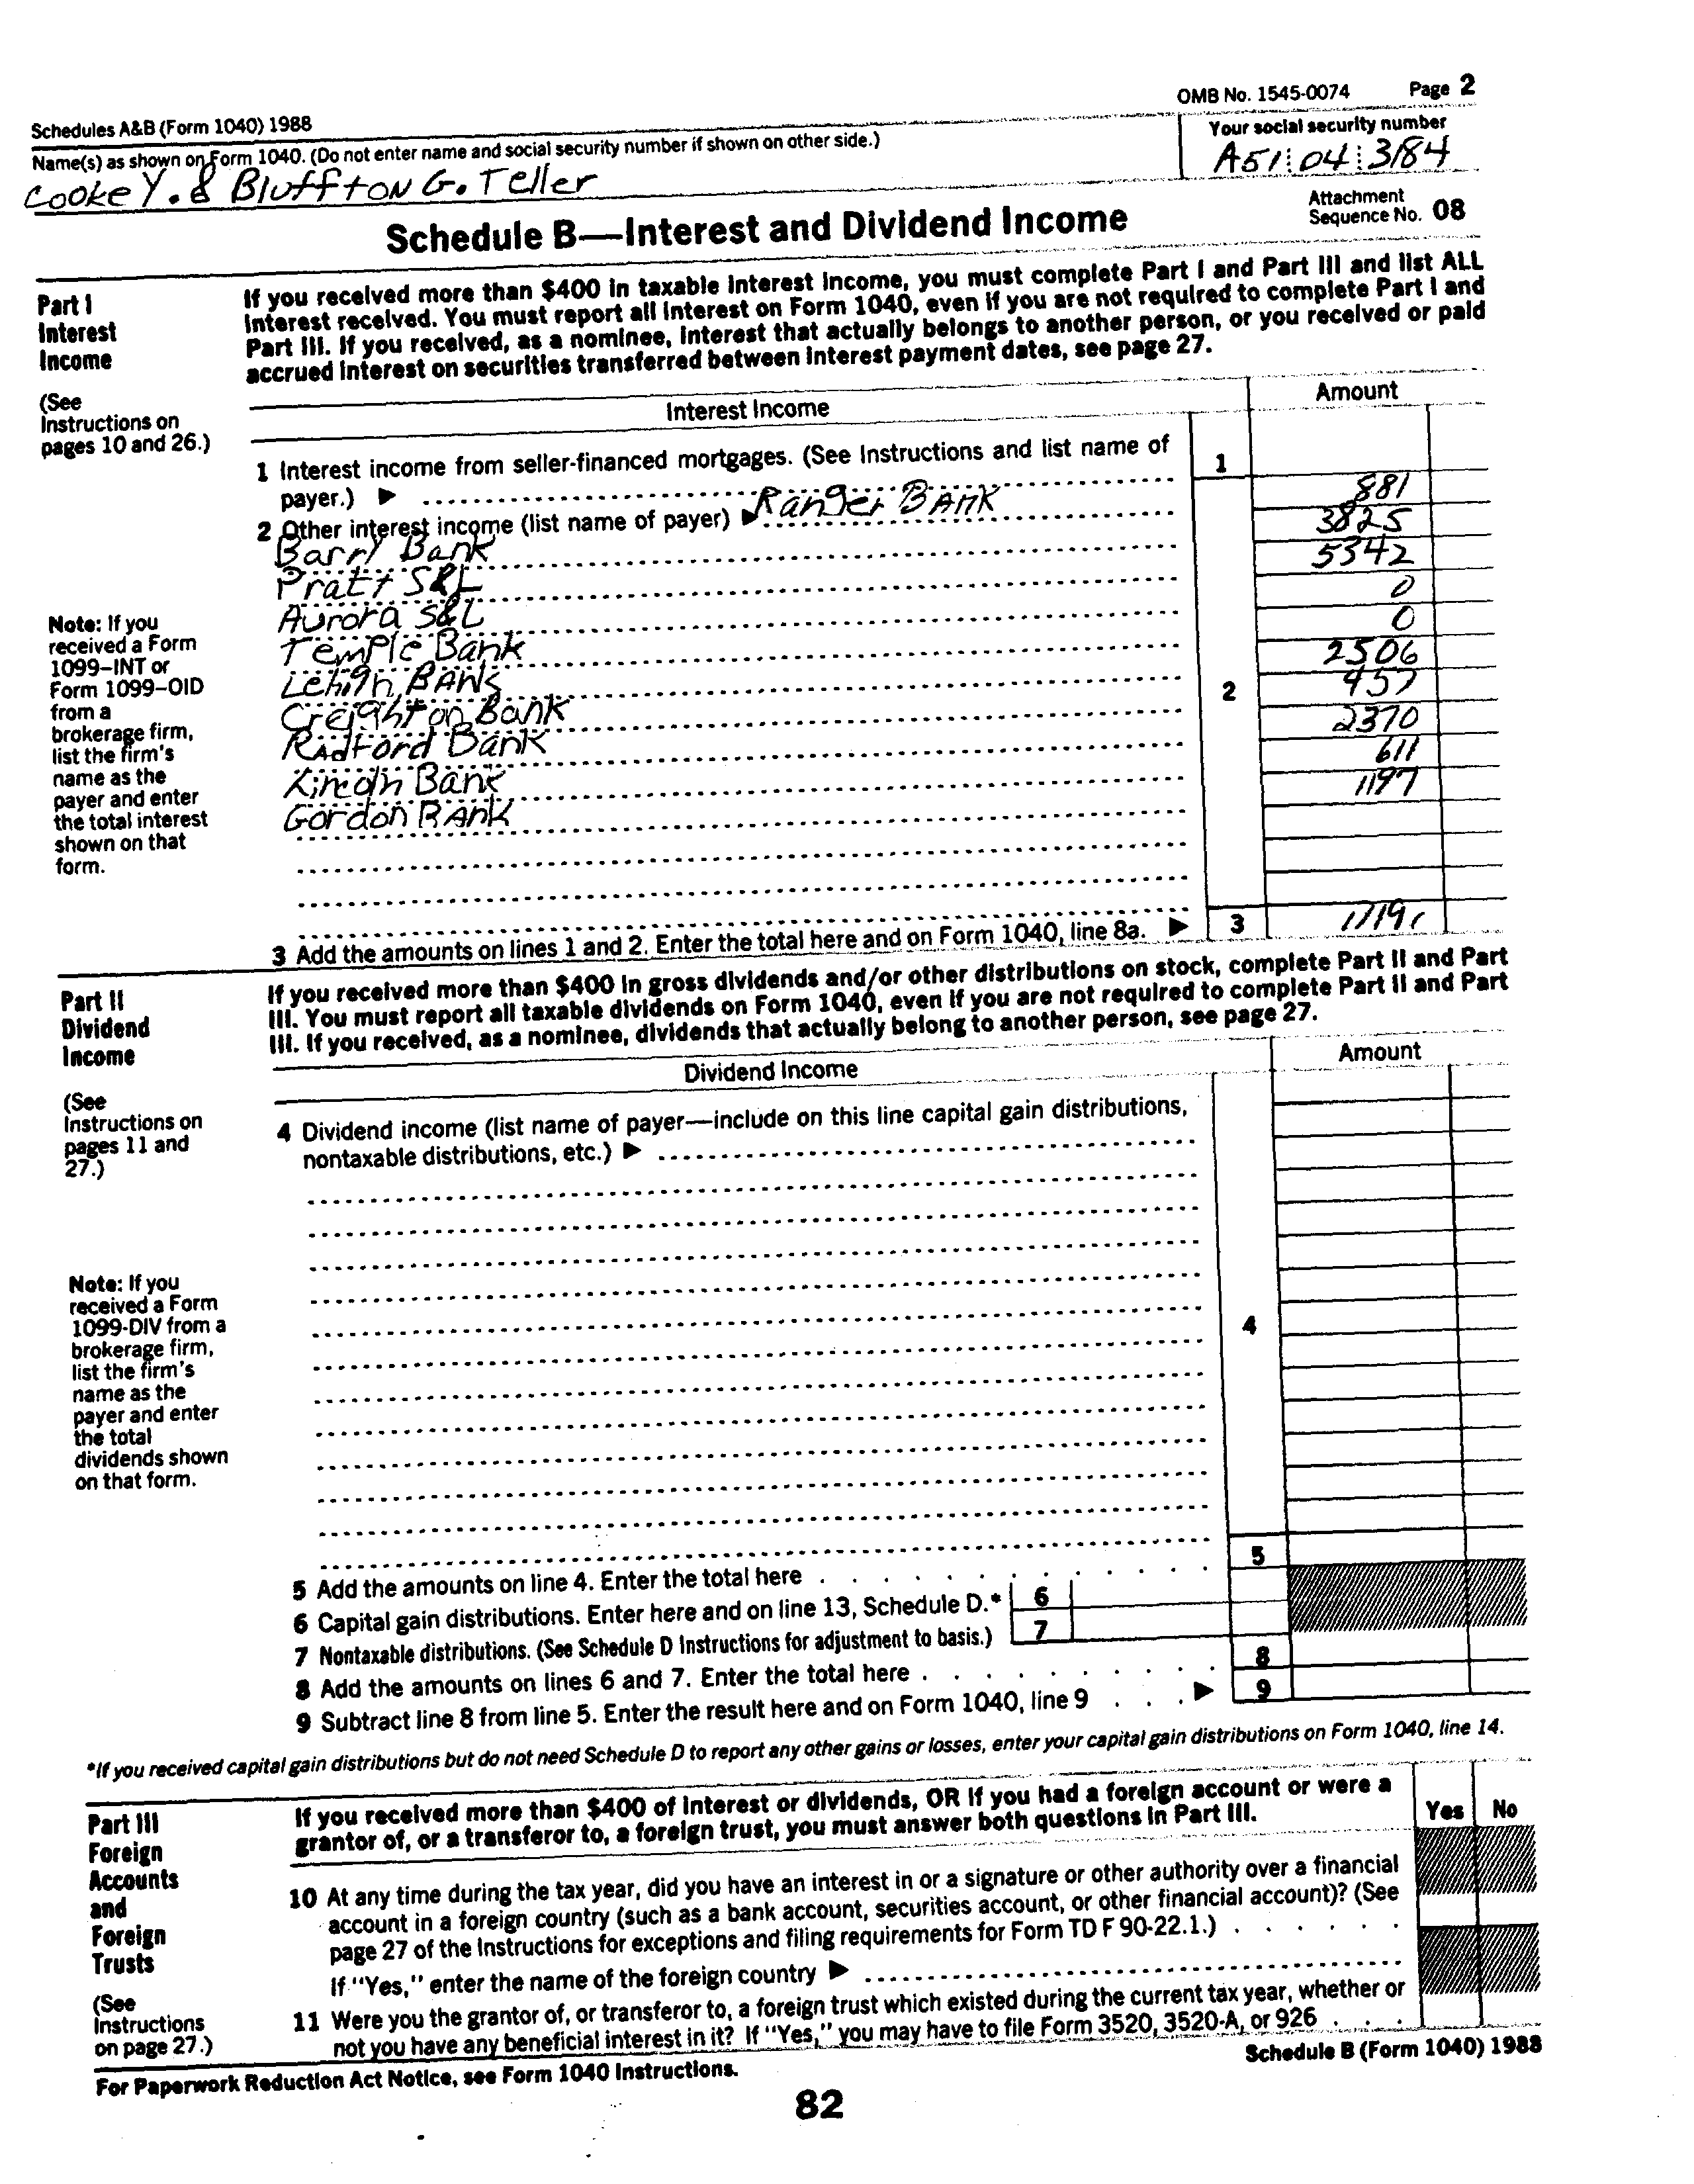 Schedules A&B (Form 1040) 1988
OMB No. 1545-0074 Page 2
Name(s) as shown on Form 1040. (Do not enter name and social security number if shown on other side.)
Your social security number
Cooke Y. & Bluffton G. Teller
A51 04 3184
Schedule B—Interest and Dividend Income
Attachment
Sequence No. 08
Part I
Interest
Income
(See
Instructions on
pages 10 and 26.)
If you received more than $400 in taxable interest income, you must complete Part I and Part III and list ALL
interest received. You must report all interest on Form 1040, even if you are not required to complete Part I and
Part III. If you received, as a nominee, interest that actually belongs to another person, or you received or paid
accrued interest on securities transferred between interest payment dates, see page 27.
Interest Income
Amount
1 Interest income from seller-financed mortgages. (See Instructions and list name of
payer.) ▶
1
2 Other interest income (list name of payer) ▶ Ranger Bank
881
Barry Bank
3825
Pratt S&L
5342
Aurora S&L
0
Temple Bank
0
Lehigh Bank
2506
Creighton Bank
457
Radford Bank
2370
Lincoln Bank
611
Gordon Bank
1197
2
Note: If you
received a Form
1099–INT or
Form 1099–OID
from a
brokerage firm,
list the firm's
name as the
payer and enter
the total interest
shown on that
form.
3 Add the amounts on lines 1 and 2. Enter the total here and on Form 1040, line 8a. ▶
3
Part II
Dividend
Income
(See
Instructions on
pages 11 and
27.)
If you received more than $400 in gross dividends and/or other distributions on stock, complete Part II and Part
III. You must report all taxable dividends on Form 1040, even if you are not required to complete Part II and Part
III. If you received, as a nominee, dividends that actually belong to another person, see page 27.
Dividend Income
Amount
4 Dividend income (list name of payer—include on this line capital gain distributions,
nontaxable distributions, etc.) ▶
4
Note: If you
received a Form
1099-DIV from a
brokerage firm,
list the firm's
name as the
payer and enter
the total
dividends shown
on that form.
5 Add the amounts on line 4. Enter the total here
5
6 Capital gain distributions. Enter here and on line 13, Schedule D.*
6
7 Nontaxable distributions. (See Schedule D Instructions for adjustment to basis.)
7
8 Add the amounts on lines 6 and 7. Enter the total here
8
9 Subtract line 8 from line 5. Enter the result here and on Form 1040, line 9 ▶
9
*If you received capital gain distributions but do not need Schedule D to report any other gains or losses, enter your capital gain distributions on Form 1040, line 14.
Part III
Foreign
Accounts
and
Foreign
Trusts
(See
Instructions
on page 27.)
If you received more than $400 of interest or dividends, OR if you had a foreign account or were a
grantor of, or a transferor to, a foreign trust, you must answer both questions in Part III.
Yes No
10 At any time during the tax year, did you have an interest in or a signature or other authority over a financial
account in a foreign country (such as a bank account, securities account, or other financial account)? (See
page 27 of the Instructions for exceptions and filing requirements for Form TD F 90-22.1.)
If "Yes," enter the name of the foreign country ▶
11 Were you the grantor of, or transferor to, a foreign trust which existed during the current tax year, whether or
not you have any beneficial interest in it? If "Yes," you may have to file Form 3520, 3520-A, or 926
For Paperwork Reduction Act Notice, see Form 1040 Instructions.
Schedule B (Form 1040) 1988
82